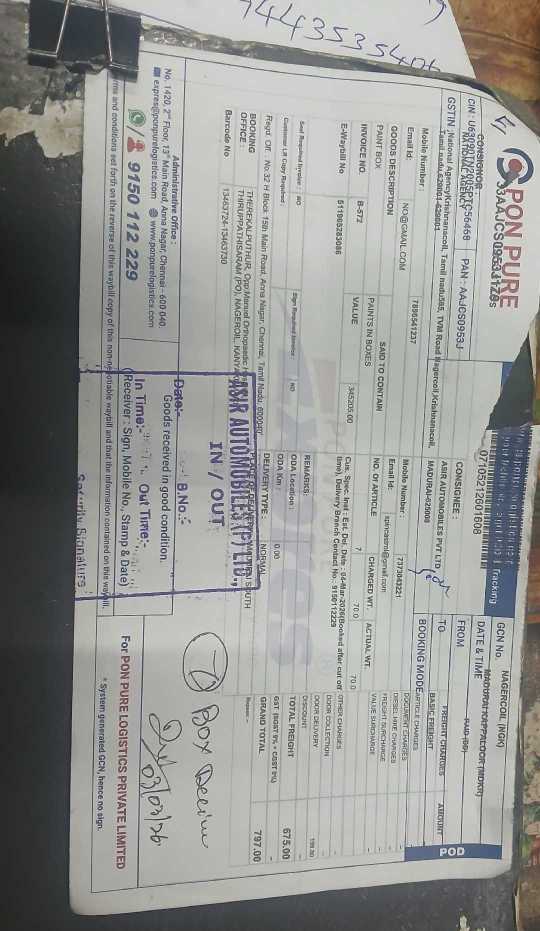 9443535406
PON PURE
33AAJCS0953J1Z9s
07105212601608
Tracking
GCN No.
NAGERCOIL (NGK)
DATE & TIME
CIN : U63090TN2005PTC56468
PAN : AAJCS0953J
CONSIGNOR
NATIONAL AGENCY
GSTIN
Tamil nadu,629001-629001
FROM
MADURAI-KAPPALOOR (MDKR)
CONSIGNEE :
ASIR AUTOMOBILES PVT LTD
MADURAI-625008
TO
BOOKING MODE
FREIGHT CHARGES
AMOUNT
POD
BASIC FREIGHT
ARTICLE CHARGES
DOCUMENT CHARGES
DIESEL HIKE CHARGES
FREIGHT SURCHARGE
VALUE SURCHARGE
OTHER CHARGES
DOOR COLLECTION
DOOR DELIVERY
199.00
DISCOUNT
TOTAL FREIGHT
675.00
GST (SGST 9% + CGST 9%)
GRAND TOTAL
797.00
Mobile Number :
7896541237
Mobile Number :
7373043221
Email Id:
NO@GMAIL.COM
Email Id :
GOODS DESCRIPTION
SAID TO CONTAIN
NO. Of ARTICLE
CHARGED WT.
ACTUAL WT.
PAINT BOX
PAINTS IN BOXES
7
70.0
70.0
INVOICE NO.
B-572
VALUE
345205.00
Cus. Spec. Inst : Est. Del. Date : 04-Mar-2026(Booked after cut off
time), Delivery Branch Contact No : 9150112229
E-Waybill No
511968283086
REMARKS:
Seal Required Invoice :
NO
Sign Required Invoice :
NO
ODA Location :
Customer LR Copy Required
ODA Km :
0.00
Regd. Off : No.32 H Block 15th Main Road, Anna Nagar, Chennai, Tamil Nadu
DELIVERY TYPE :
NORMAL
BOOKING
OFFICE
THEREKALPUTHUR, Opp.Manud Orthopaedic
THIRUPPATHISARAM (PO), NAGEROIL,
Barcode No
13463724-13463730
ASIR AUTOMOBILES (P) LTD.,
IN / OUT
Date:-
B.No.:-
In Time:-
Out Time:-
Security Signature :
Administrative Office :
No. 1420, 2nd Floor, 13th Main Road, Anna Nagar, Chennai - 600 040.
expres@ponpurelogistics.com
www.ponpurelogistics.com
9150 112 229
Goods received in good condition.
(Receiver : Sign, Mobile No., Stamp & Date)
7 Box
03/03/26
For PON PURE LOGISTICS PRIVATE LIMITED
* System generated GCN, hence no sign.
rms and conditions set forth on the reverse of this waybill copy of this non-negotiable waybill and that the information contained on this waybill